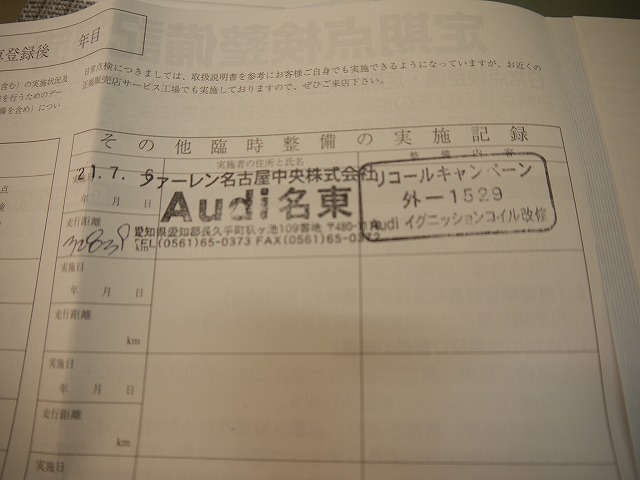 録後 年目
日常点検につきましては、取扱説明書を参考にお客様ご自身でも実施できるようになっていますが、お近くの
正規販売店サービス工場でも実施しておりますので、ぜひご来店下さい。
含む）の実施状況及
を行うためのデー
備を含め）につい
その他臨時整備の実施記録
実施者の住所と氏名
整備内容
21.7.6
年 月 日
ファーレン名古屋中央株式会社
Audi 名東
愛知県愛知郡長久手町杁ケ池109番地 〒480-11
TEL(0561)65-0373 FAX(0561)65-0372
リコールキャンペーン
外-1529
Audi イグニッションコイル改修
走行距離
km
実施日
年 月 日
走行距離
km
実施日
年 月 日
走行距離
km
実施日
点
検